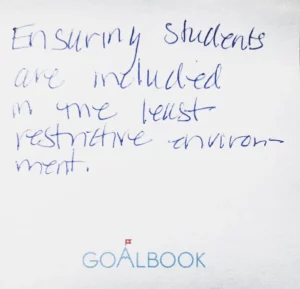 Ensuring students
are included
in the least
restrictive environ-
ment.
GOALBOOK